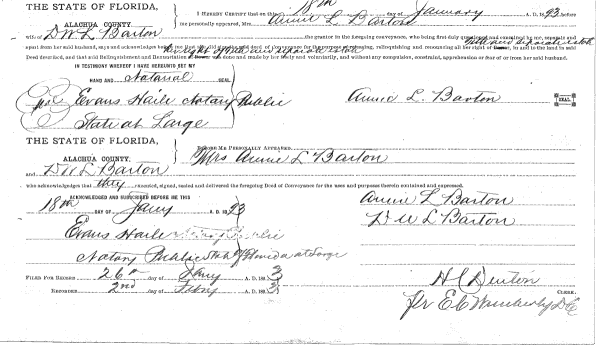 THE STATE OF FLORIDA,
ALACHUA COUNTY.
I HEREBY CERTIFY that on this 18th day of January A. D. 1893 before
me personally appeared, Mrs. Annie L. Barton
wife of D W L Barton the grantor in the foregoing conveyance, who being first duly examined by me, separate and
apart from her said husband, says and acknowledges to me that she did said deed of Conveyance for the purpose of releasing, relinquishing and renouncing all her right of in and to the land in said
Deed described, and that said Relinquishment and Renunciation of was done and made by her freely and voluntarily, and without any compulsion, constraint, apprehension or fear of or from her said husband.
IN TESTIMONY WHEREOF I HAVE HEREUNTO SET MY
HAND AND Notarial SEAL
Evans Haile Notary Public
State at Large
Annie L. Barton SEAL.
THE STATE OF FLORIDA,
ALACHUA COUNTY.
BEFORE ME PERSONALLY APPEARED
Mrs Annie L Barton
and D W L Barton
who acknowledges that they executed, signed, sealed and delivered the foregoing Deed of Conveyance for the uses and purposes therein contained and expressed.
ACKNOWLEDGED AND SUBSCRIBED BEFORE ME THIS
18th DAY OF Jany A. D. 1893
Annie L Barton
D W L Barton
Evans Haile Notary Public
Notary Public State of Florida at Large
FILED FOR RECORD 26th day of Jany A. D. 1893
RECORDED 2nd day of Feby A. D. 1893
H C Denton
CLERK.
pr E C Wimberly D C